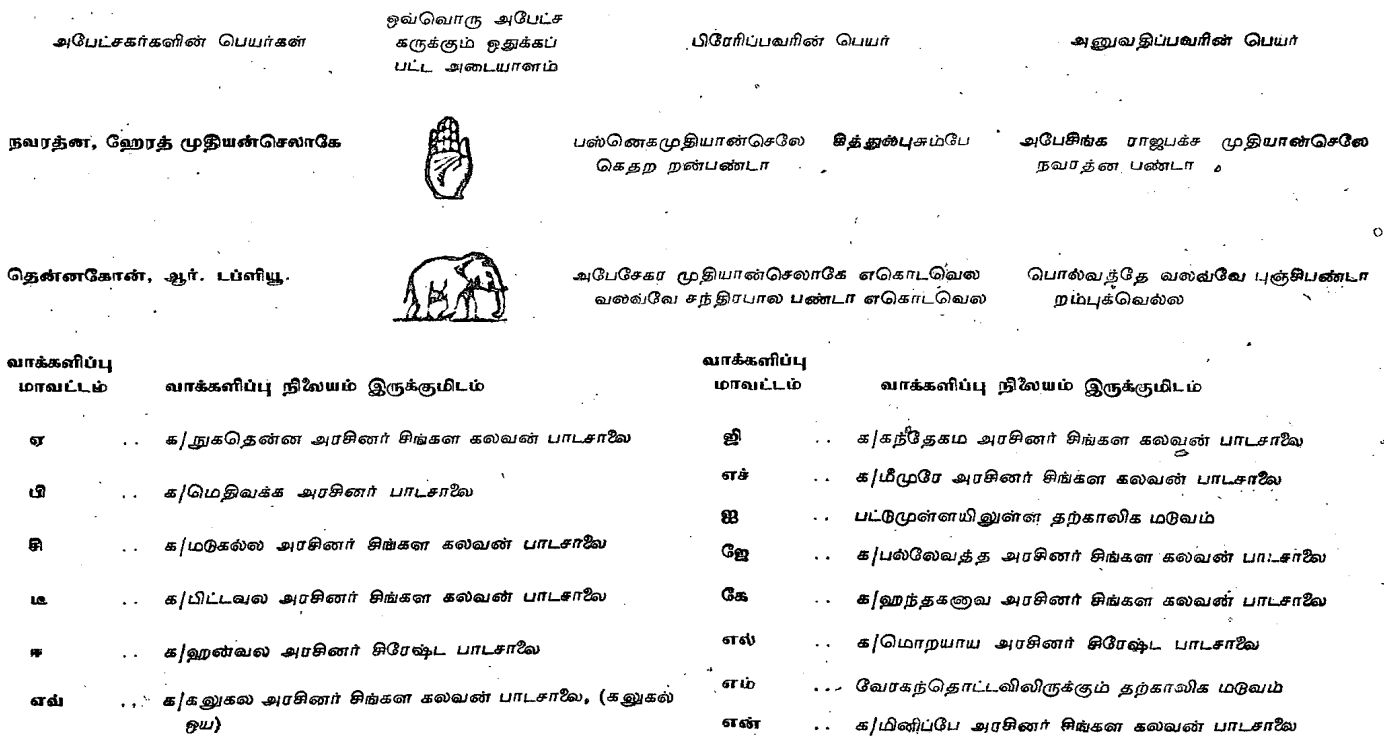 அபேட்சகர்களின் பெயர்கள்
ஒவ்வொரு அபேட்ச
கருக்கும் ஒதுக்கப்
பட்ட அடையாளம்
பிரேரிப்பவரின் பெயர்
அனுவதிப்பவரின் பெயர்
நவரத்ன, ஹேரத் முதியன்செலாகே
பஸ்னெகமுதியான்செலே கித்துல்புசும்பே
கெதற றன்பண்டா
அபேசிங்க ராஜபக்ச முதியான்செலே
நவரத்ன பண்டா
தென்னகோன், ஆர். டப்ளியூ.
அபேசேகர முதியான்செலாகே எகொடவெல
வலவ்வே சந்திரபால பண்டா எகொடவெல
பொல்வத்தே வலவ்வே புஞ்சிபண்டா
றம்புக்வெல்ல
வாக்களிப்பு
மாவட்டம் வாக்களிப்பு நிலையம் இருக்குமிடம்
ஏ .. க/நுகதென்ன அரசினர் சிங்கள கலவன் பாடசாலை
பி .. க/மெதிவக்க அரசினர் பாடசாலை
சி .. க/மடுகல்ல அரசினர் சிங்கள கலவன் பாடசாலை
டீ .. க/பிட்டவல அரசினர் சிங்கள கலவன் பாடசாலை
ஈ .. க/ஹன்வல அரசினர் சிரேஷ்ட பாடசாலை
எவ் .. க/கலுகல அரசினர் சிங்கள கலவன் பாடசாலை, (கலுகல்
ஒய)
வாக்களிப்பு
மாவட்டம் வாக்களிப்பு நிலையம் இருக்குமிடம்
ஜி .. க/கந்தேகம அரசினர் சிங்கள கலவன் பாடசாலை
எச் .. க/மீமுரே அரசினர் சிங்கள கலவன் பாடசாலை
ஐ .. பட்டுமுள்ளயிலுள்ள தற்காலிக மடுவம்
ஜே .. க/பல்லேவத்த அரசினர் சிங்கள கலவன் பாடசாலை
கே .. க/ஹந்தகனாவ அரசினர் சிங்கள கலவன் பாடசாலை
எல் .. க/மொறயாய அரசினர் சிரேஷ்ட பாடசாலை
எம் ... வேரகந்தொட்டவிலிருக்கும் தற்காலிக மடுவம்
என் .. க/மினிப்பே அரசினர் சிங்கள கலவன் பாடசாலை